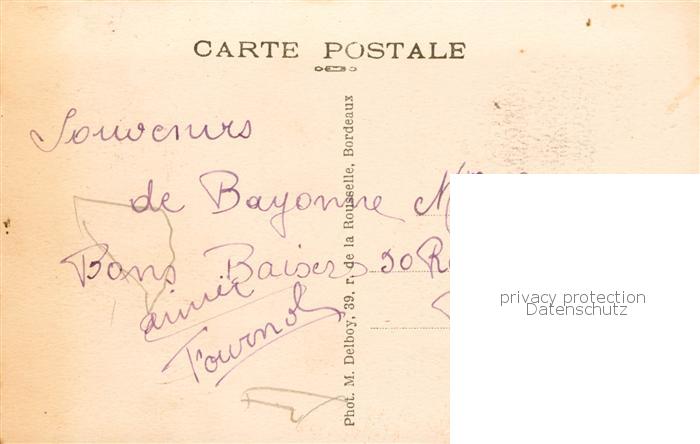 CARTE POSTALE
Souvenirs
de Bayonne
Bons Baisers
Fournol
Phot. M. Delboy, 39, r. de la Rousselle, Bordeaux
30 R
privacy protection
Datenschutz